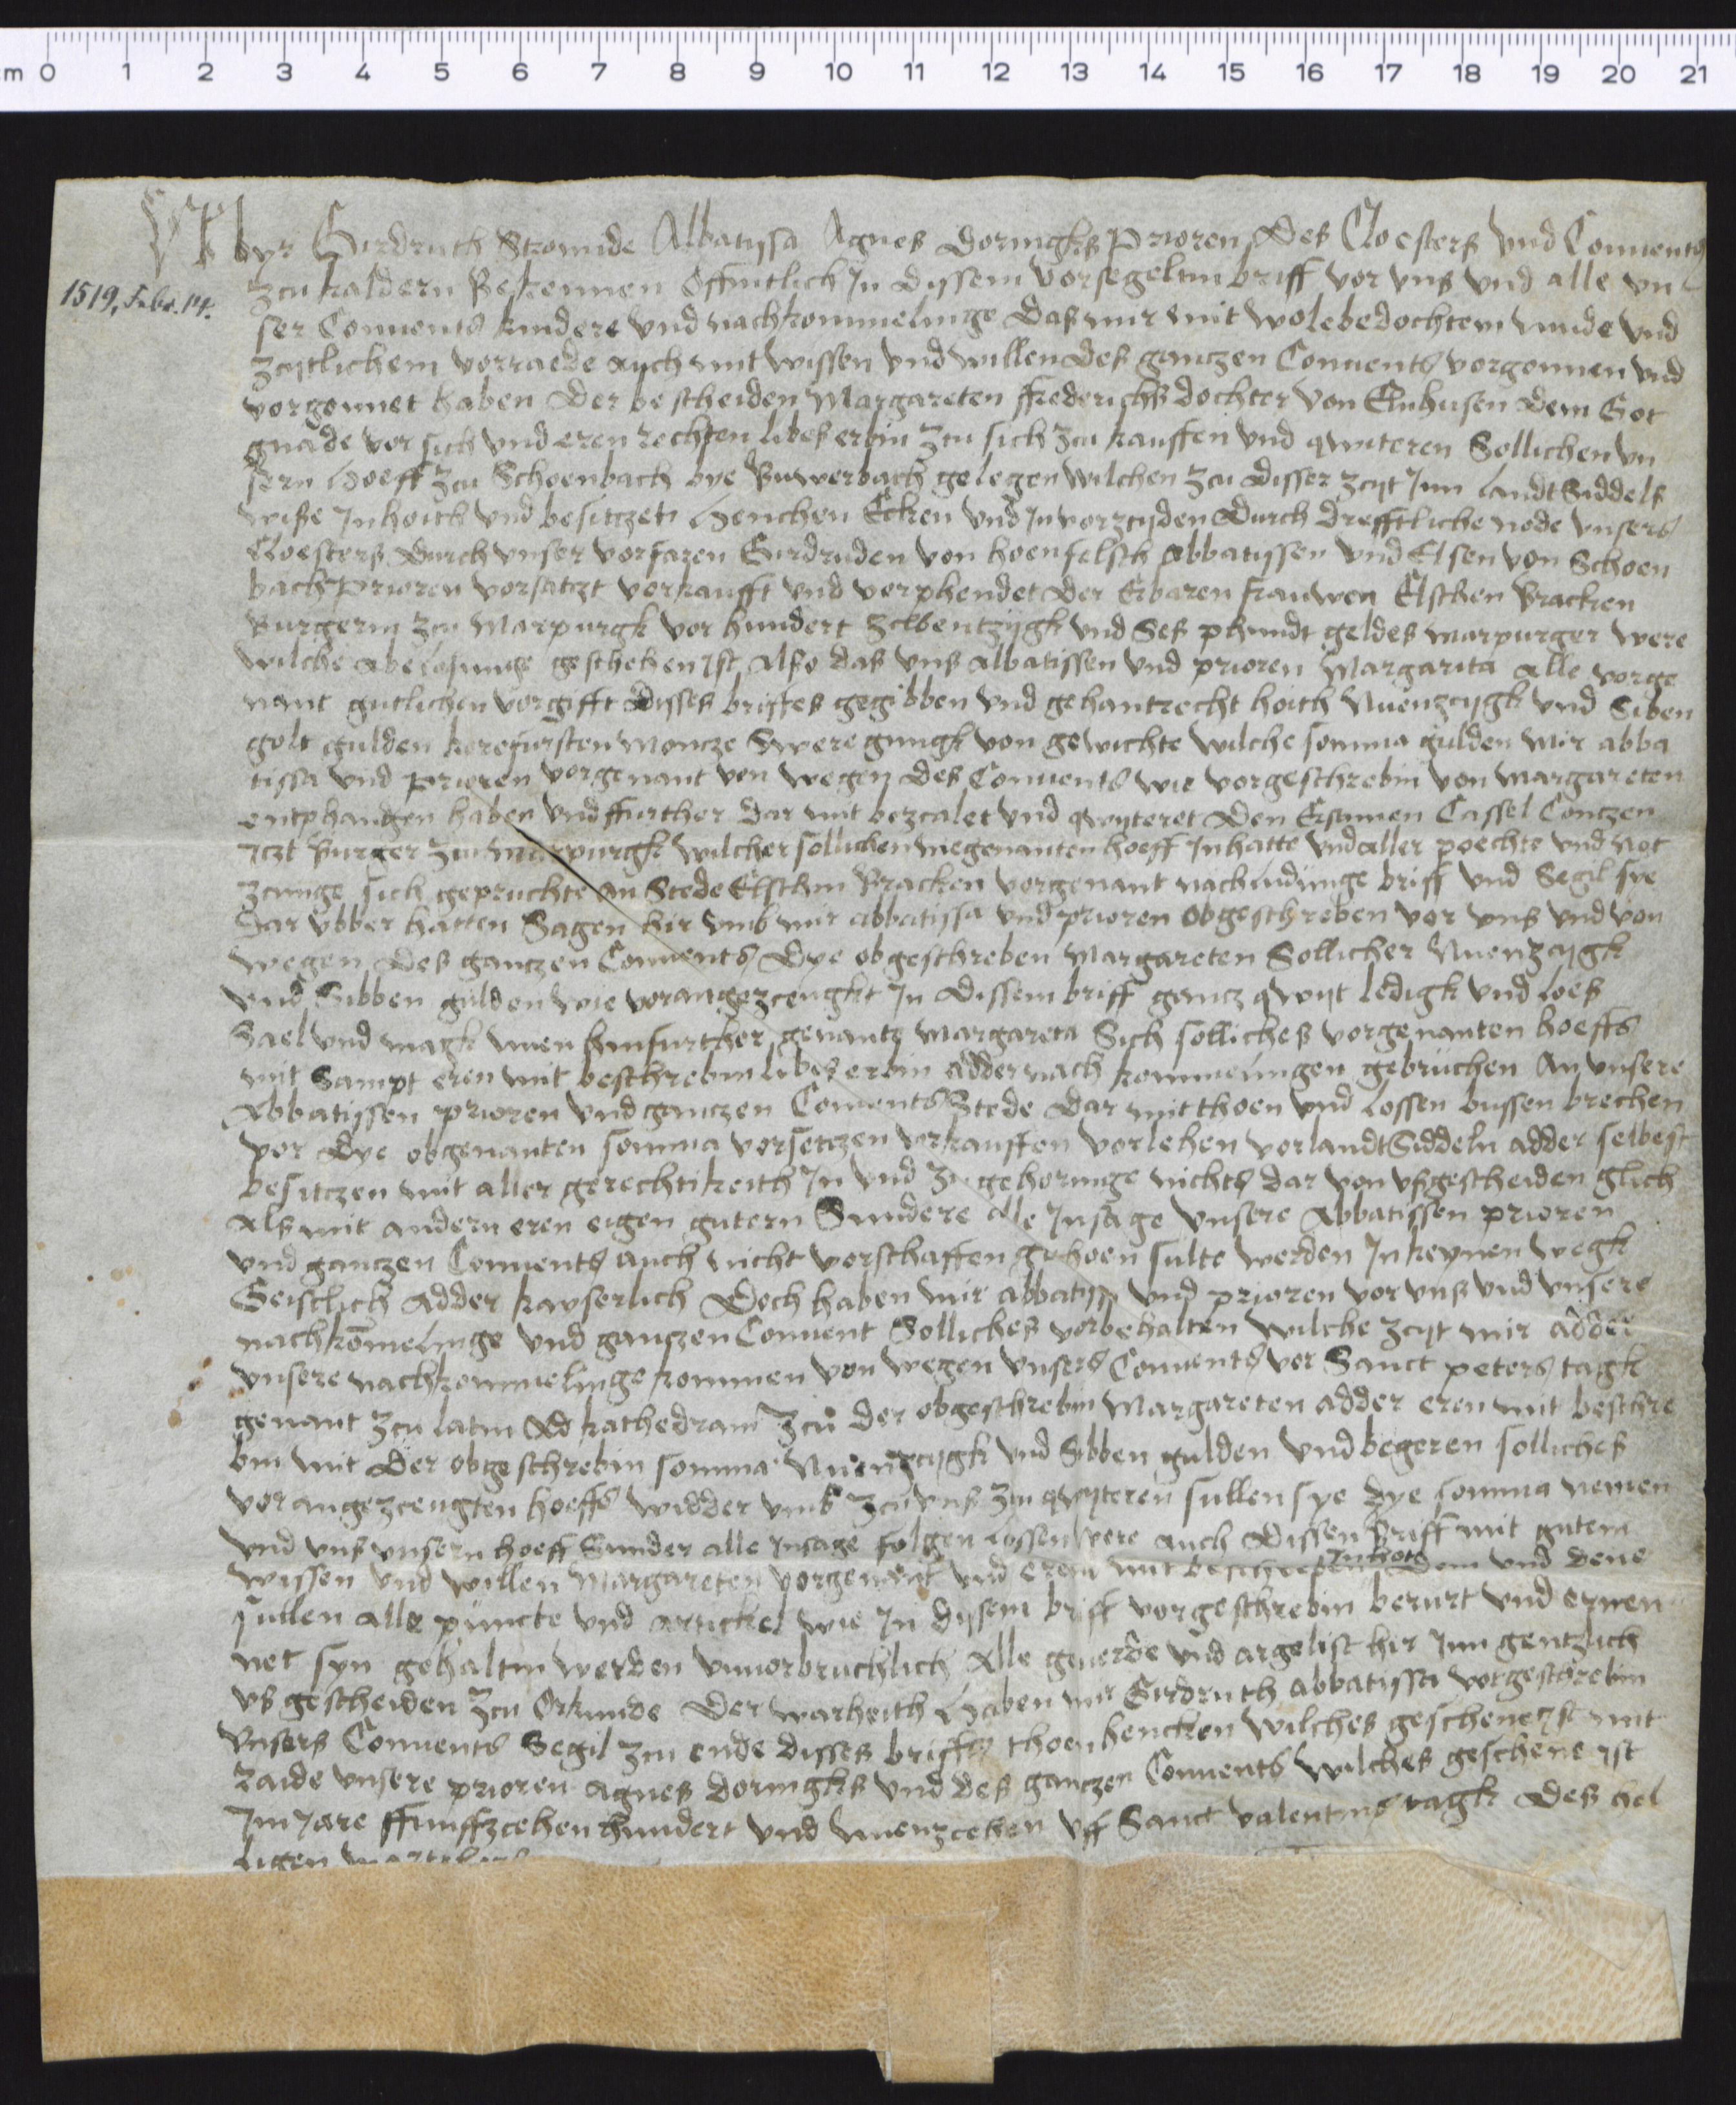 cm 0 1 2 3 4 5 6 7 8 9 10 11 12 13 14 15 16 17 18 19 20 21
Wyr Girdruth Abbatyssa Agnes Doringks Prioren Des Cloesters vnd Conuents
1519, Febr. 14.
zcu kaldern Bekennen Offintlich Jn dyssem vorsegeltin briff vor vns vnd alle vn
ser Conuents kindere vnd nachkommelinge Das mir mit wolebedochtem mude vnd
zcytlichem vorraede auch mit wissen vnd willen des ganczen Conuents vorgonnen vnd
vorgonnet haben Der bescheiden Margareten ffrederichs dochter von Elnhusen dem Got
gnade vor sich vnd eren rechten libes erbin zcu sich zcu kauffen vnd qwiteren Sollichen vn
sern Hoeff zcu Schoenbach bye Buwerbach gelegen wilchen zcu disser zcyt Jnn landtSiddels
wise Jnhoith vnd besitczet Henchen Ecken vnd Jn vorzcyden Durch drefftliche node vnsers
Cloesters durch vnser vorfaren Girdruden von hoenfelsch Abbatyssen vnd Elsen von Schoen
bach Prioren vorsatczt verkaufft vnd verphendet Der Erbaren frauwen Elschen Bracken
Burgerin zcu Marpurgk vor hundert Sebentzygk vnd Ses phundt geldes marpurger were
wilche abelosunge geschehen Jst Also das vns Abbatissen vnd prioren Margarita alle vorge
nant gutlichen vorgifft disses briffes gegibben vnd gehantrecht hoith Nuenzcygk vnd Siben
golt gulden korefursten moncze Swere gnugk von gewichte wilche somma gulden mir abba
tissa vnd Prioren vorgenant von wegen des Conuents wie vorgeschrebin von Margareten
entphangen haben vnd ffurther dar mit bezcalet vnd qwyteret Den Ersamen Cassel Conczen
Jczt Burger zcu Marpurgk wilcher sollichen megenanten hoeff Jnhatte vnd aller poechte vnd not
zcunge sich gepruchte an Stede Elschin Bracken vorgenant nach ludunge briff vnd Segil sye
Dar vbber hatten Sagen hir vmb mir abbatissa vnd prioren obgeschreben vor vns vnd von
wegen des ganczen Conuents Dye obgeschreben Margareten Sollicher Nuenzcygk
vnd Sibben gulden wie vorangezceugkt Jn dissem briff gancz qwyt ledigk vnd loes
Sael vnd magk nuen hinfurther genante Margareta Sich solliches vorgenanten hoeffs
mit Sampt eren mit beschrebin libes erbin adder nach kommelingen gebruchen An vnsere
Abbatissen prioren vnd ganczen Conuents Stede dar mit thoen vnd lossen bussen brechen
vor dye obgenanten somma vorsetczen vrkauffen vorlehen vorlandtSiddeln adder selbest
besitczen mit aller gerechtikeith Jn vnd zugehorunge nichts dar von vsgescheiden glich
Als mit andern eren eigen gutern Sundere alle Jnsage vnsere Abbatissen prioren
vnd ganczen Conuents auch nicht vorschaffen gethoen sulte werden Jn keynen wegk
Geistlich adder kayserlich Doch haben mir abbatissa vnd prioren vor vns vnd vnsere
nachkomelinge vnd ganczen Conuent Solliches vorbehalten wilche zcyt mir adder
vnsere nachkommelinge kommen von wegen vnsers Conuents vor Sanct peters tagk
genant zcu latin Ad kathedram zcu der obgeschrebin Margareten adder eren mit beschre
bin mit der obgeschrebin somma Nuenzcygk vnd Sibben gulden vnd begeren solliches
vorangezceugten hoeffs widder vmb zcu vns zcu qwyteren sullen sye dye somma nemen
vnd vns vnsern hoeff Sunder alle Jnsage folgen lossen were auch dissen Briff mit gutem
wissen vnd willen Margareten vorgenant vnd eren mit Jnhot Dem vnd dene
sullen alle puncte vnd artickel wie Jn dysem briff vorgeschrebin berurt vnd ernen
net syn gehaltin werden vnuorbruchlich Alle geuerde vnd argelist hir Jnn gentzlich
vsgescheiden zcu Orkunde Der warheith Haben mir Girdruth abbatyssa vorgeschrebin
Vnsers Conuents Segil zcu ende disses briffs thoen hencken wilches geschene Jst mit
Raide vnsere prioren Agnes doringks vnd des ganczen Conuents wilches geschene ist
Jm Jare ffunffzcehen hundert vnd nuenzcehen vff Sanct valentins tagk Des hel
ligen